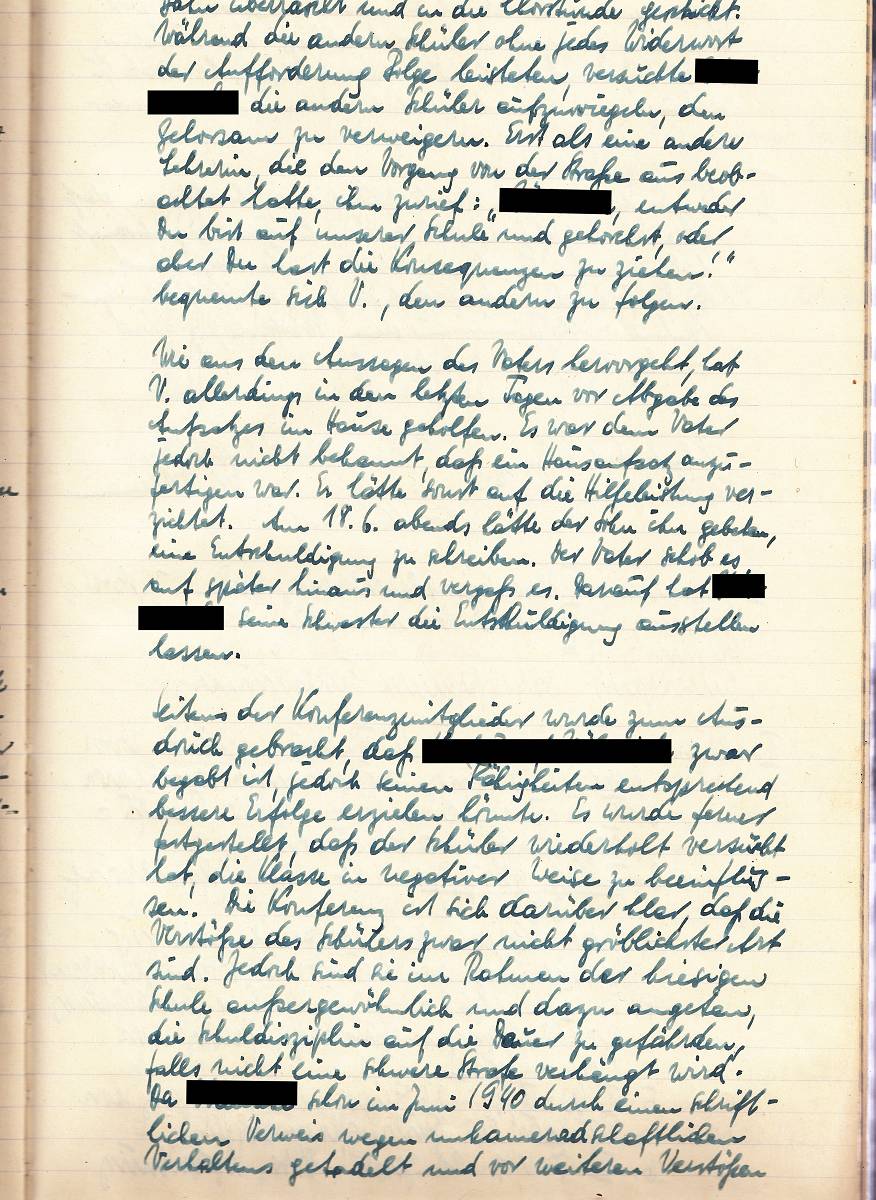 überrascht und in die Chorstunde geschickt.
Während die andern Schüler ohne jedes Widerwort
der Aufforderung Folge leisteten, versuchte
die andern Schüler aufzuwiegeln, den
Gehorsam zu verweigern. Erst als eine andere
Lehrerin, die den Vorgang von der Straße aus beob-
achtet hatte, ihm zurief: „, entweder
Du bist auf unserer Schule und gehorchst, oder
aber Du hast die Konsequenzen zu ziehen!“
bequemte sich V., den andern zu folgen.
Wie aus den Aussagen des Vaters hervorgeht, hat
V. allerdings in den letzten Tagen vor Abgabe des
Aufsatzes im Hause geholfen. Es war dem Vater
jedoch nicht bekannt, daß ein Hausaufsatz anzu-
fertigen war. Er hätte sonst auf die Hilfeleistung ver-
zichtet. Am 18.6. abends hätte der Sohn ihn gebeten,
eine Entschuldigung zu schreiben. Der Vater schob es
auf später hinaus und vergaß es. Darauf hat
seine Schwester die Entschuldigung ausstellen
lassen.
Seitens der Konferenzmitglieder wurde zum Aus-
druck gebracht, daß zwar
begabt ist, jedoch seinen Fähigkeiten entsprechend
bessere Erfolge erzielen könnte. Es wurde ferner
festgestellt, daß der Schüler wiederholt versucht
hat, die Klasse in negativer Weise zu beeinflus-
sen. Die Konferenz ist sich darüber klar, daß die
Verstöße des Schülers zwar nicht gröblichster Art
sind. Jedoch sind sie im Rahmen der hiesigen
Schule außergewöhnlich und dazu angetan,
die Schuldisziplin auf die Dauer zu gefährden,
falls nicht eine schwere Strafe verhängt wird.
Da schon im Juni 1940 durch einen schrift-
lichen Verweis wegen unkameradschaftlichen
Verhaltens getadelt und vor weiteren Verstößen